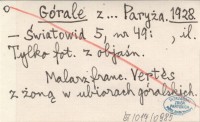 Górale z... Paryża. 1928.
- Światowid 5, nr 49: , il.
Tylko fot. z objaśn.
Malarz franc. Vertès
z żoną w ubiorach góralskich.